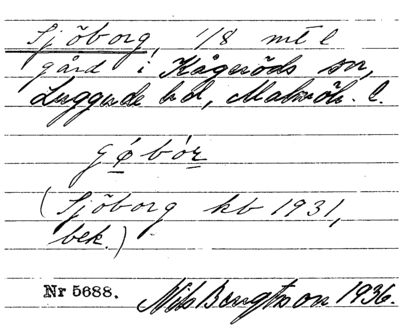 Sjöborg, 1/8 mtl
gård i Kågeröds sn,
Luggude hd, Malmöh. l.
gǿbór
(Sjöborg kb 1931,
bek.)
Nr 5688. Nils Bengtsson 1936.